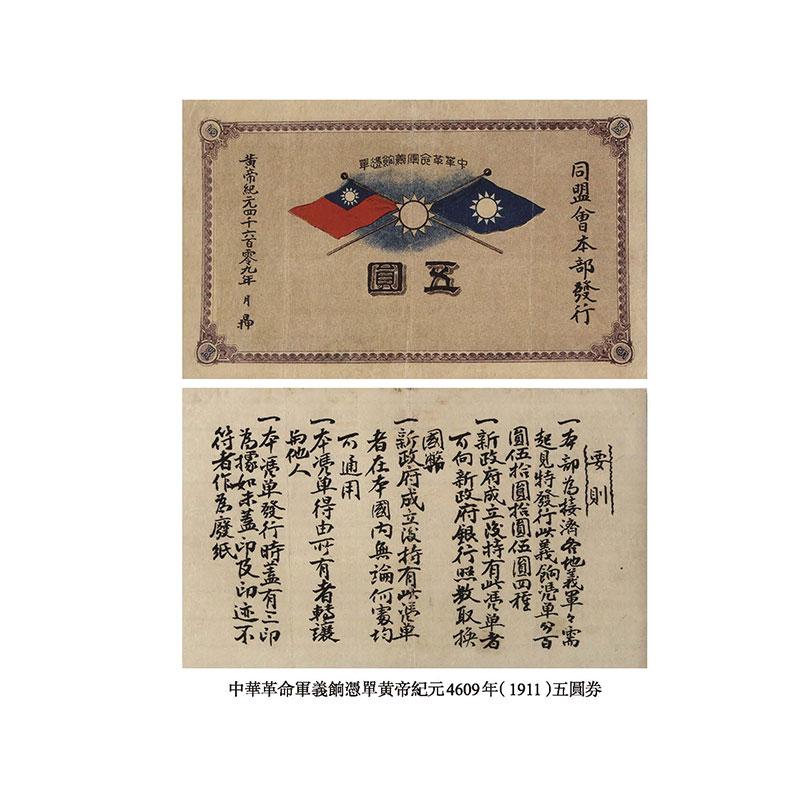 中華革命軍義餉憑單
同盟會本部發行
五圓
黃帝紀元四千六百零九年 月 㷌
要則
一本部為接濟各地義軍々需
起見特發行此義餉憑單分百
圓伍拾圓拾圓伍圓四種
一新政府成立後持有此憑單者
可向新政府銀行照數取換
國幣
一新政府成立後持有此憑單
者在本國內無論何處均
可通用
一本憑單得由所有者轉讓
與他人
一本憑單發行時蓋有三印
為據如未蓋印及印迹不
符者作為廢紙
中華革命軍義餉憑單黃帝紀元4609年(1911)五圓券